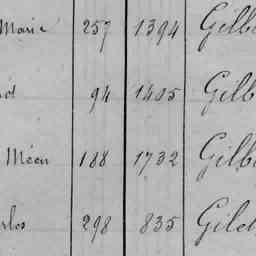 Marie 257 1394 Gilb
94 1405 Gilb
Méen 188 1732 Gilb
rles 298 835 Gild